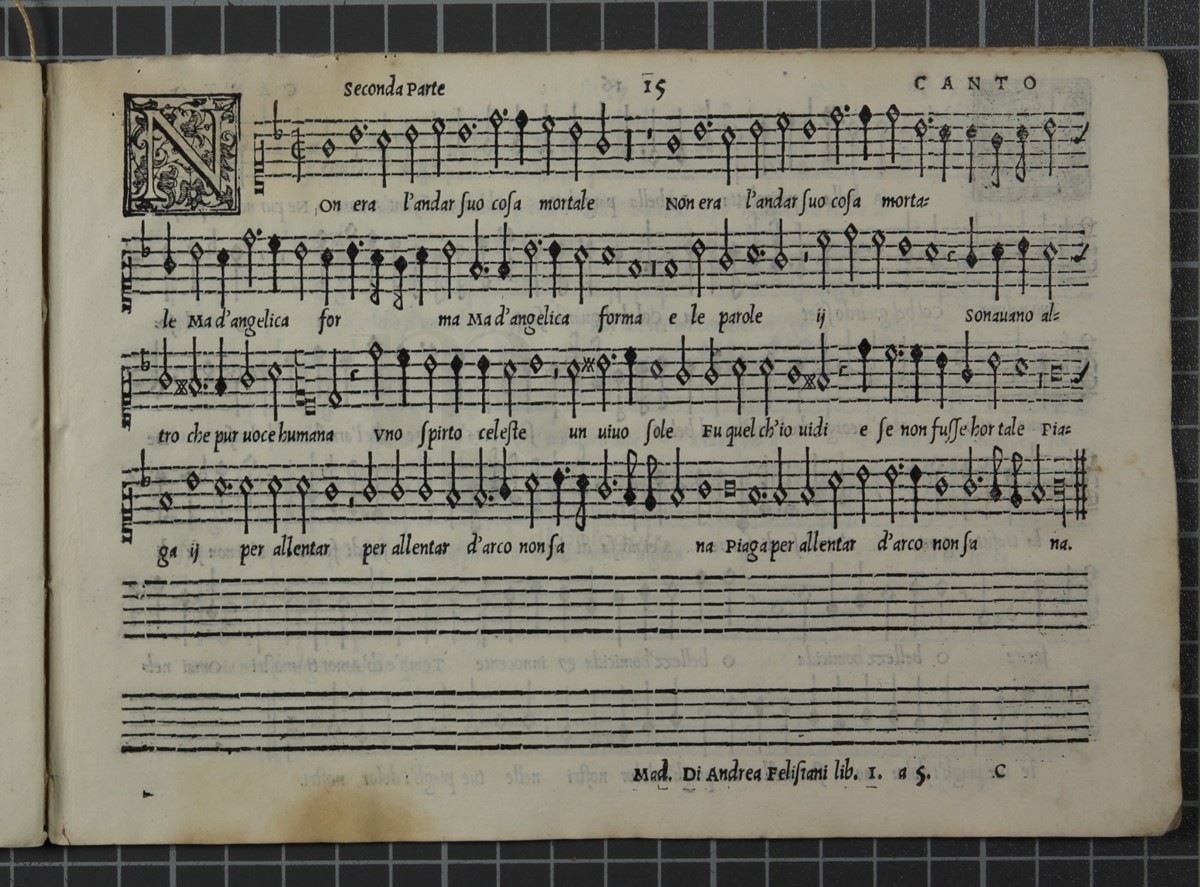 Seconda Parte 15 CANTO
NOn era l'andar ſuo coſa mortale Non era l'andar ſuo coſa morta=
le Ma d'angelica for ma Ma d'angelica forma e le parole ij Sonauano al=
tro che pur uoce humana vno ſpirto celeſte un uiuo ſole Fu quel ch'io uidi e ſe non fuſſe hor tale Pia=
ga ij per allentar per allentar d'arco non ſa na Piaga per allentar d'arco non ſa na.
Mad. Di Andrea Feliſiani lib. 1. a 5. C